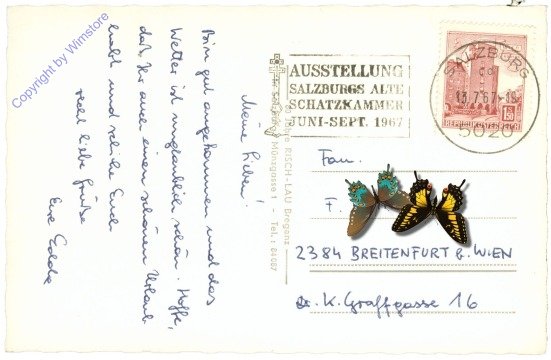 Copyright by Wimstore
Meine Lieben!
Bin gut angekommen und das
Wetter ist unglaublich schön. Hoffe,
daß Ihr auch einen schönen Urlaub
habt und schicke Euch
recht liebe Grüße
Eure
RISCH-LAU Bregenz
Münzgasse 1 - Tel.
AUSSTELLUNG
SALZBURGS ALTE
SCHATZKAMMER
JUNI-SEPT. 1967
SALZBURG
13.7.67-18
5020
REPUBLIK ÖSTERREICH
1.50
Fam.
F.
2384 BREITENFURT b. WIEN
K. Graffgasse 16